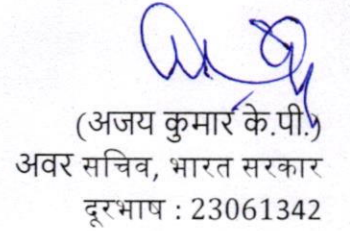 (अजय कुमार के.पी.)
अवर सचिव, भारत सरकार
दूरभाष : 23061342